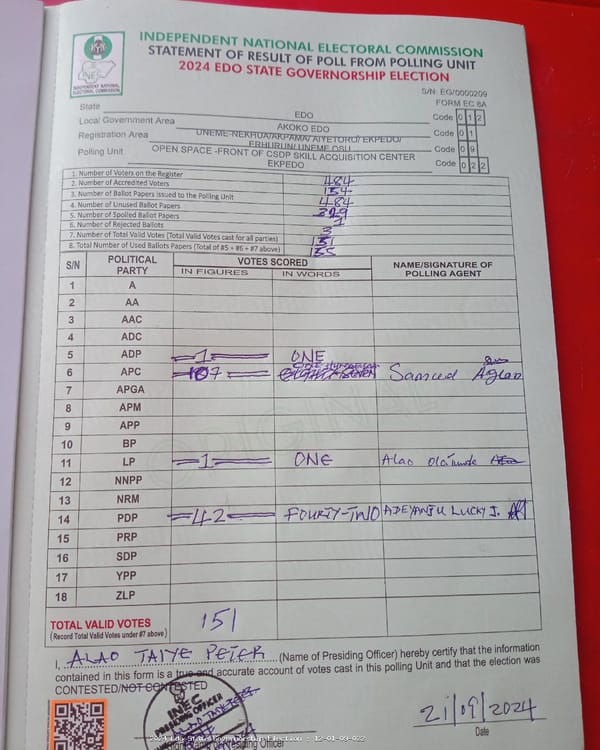 INDEPENDENT NATIONAL ELECTORAL COMMISSION
STATEMENT OF RESULT OF POLL FROM POLLING UNIT
2024 EDO STATE GOVERNORSHIP ELECTION
INEC
INDEPENDENT NATIONAL ELECTORAL COMMISSION
S/N: EG/0000209
FORM EC 8A
State EDO Code 0 1 2
Local Government Area AKOKO EDO Code 0 1
Registration Area UNEME-NEKHUA/AKPAMA/ AIYETORO/ EKPEDO/ ERHURUN/ UNEME OSU Code 0 9
Polling Unit OPEN SPACE -FRONT OF CSDP SKILL ACQUISITION CENTER EKPEDO Code 0 2 2
1. Number of Voters on the Register 484
2. Number of Accredited Voters 154
3. Number of Ballot Papers issued to the Polling Unit 484
4. Number of Unused Ballot Papers 329
5. Number of Spoiled Ballot Papers 1
6. Number of Rejected Ballots 3
7. Number of Total Valid Votes (Total Valid Votes cast for all parties) 151
8. Total Number of Used Ballots Papers (Total of #5 + #6 + #7 above) 155
S/N POLITICAL PARTY VOTES SCORED NAME/SIGNATURE OF POLLING AGENT
IN FIGURES IN WORDS
1 A
2 AA
3 AAC
4 ADC
5 ADP 1 ONE
6 APC 107
7 APGA
8 APM
9 APP
10 BP
11 LP 1 ONE Alao
12 NNPP
13 NRM
14 PDP 42 FOURTY-TWO ADEYANJU LUCKY J.
15 PRP
16 SDP
17 YPP
18 ZLP
TOTAL VALID VOTES 151
(Record Total Valid Votes under #7 above)
I, ALAO TAIYE PETER (Name of Presiding Officer) hereby certify that the information
contained in this form is a true and accurate account of votes cast in this polling Unit and that the election was
CONTESTED/NOT CONTESTED
INEC
21/09/2024
Date
2024 Edo State Governorship Election : 12-01-09-022